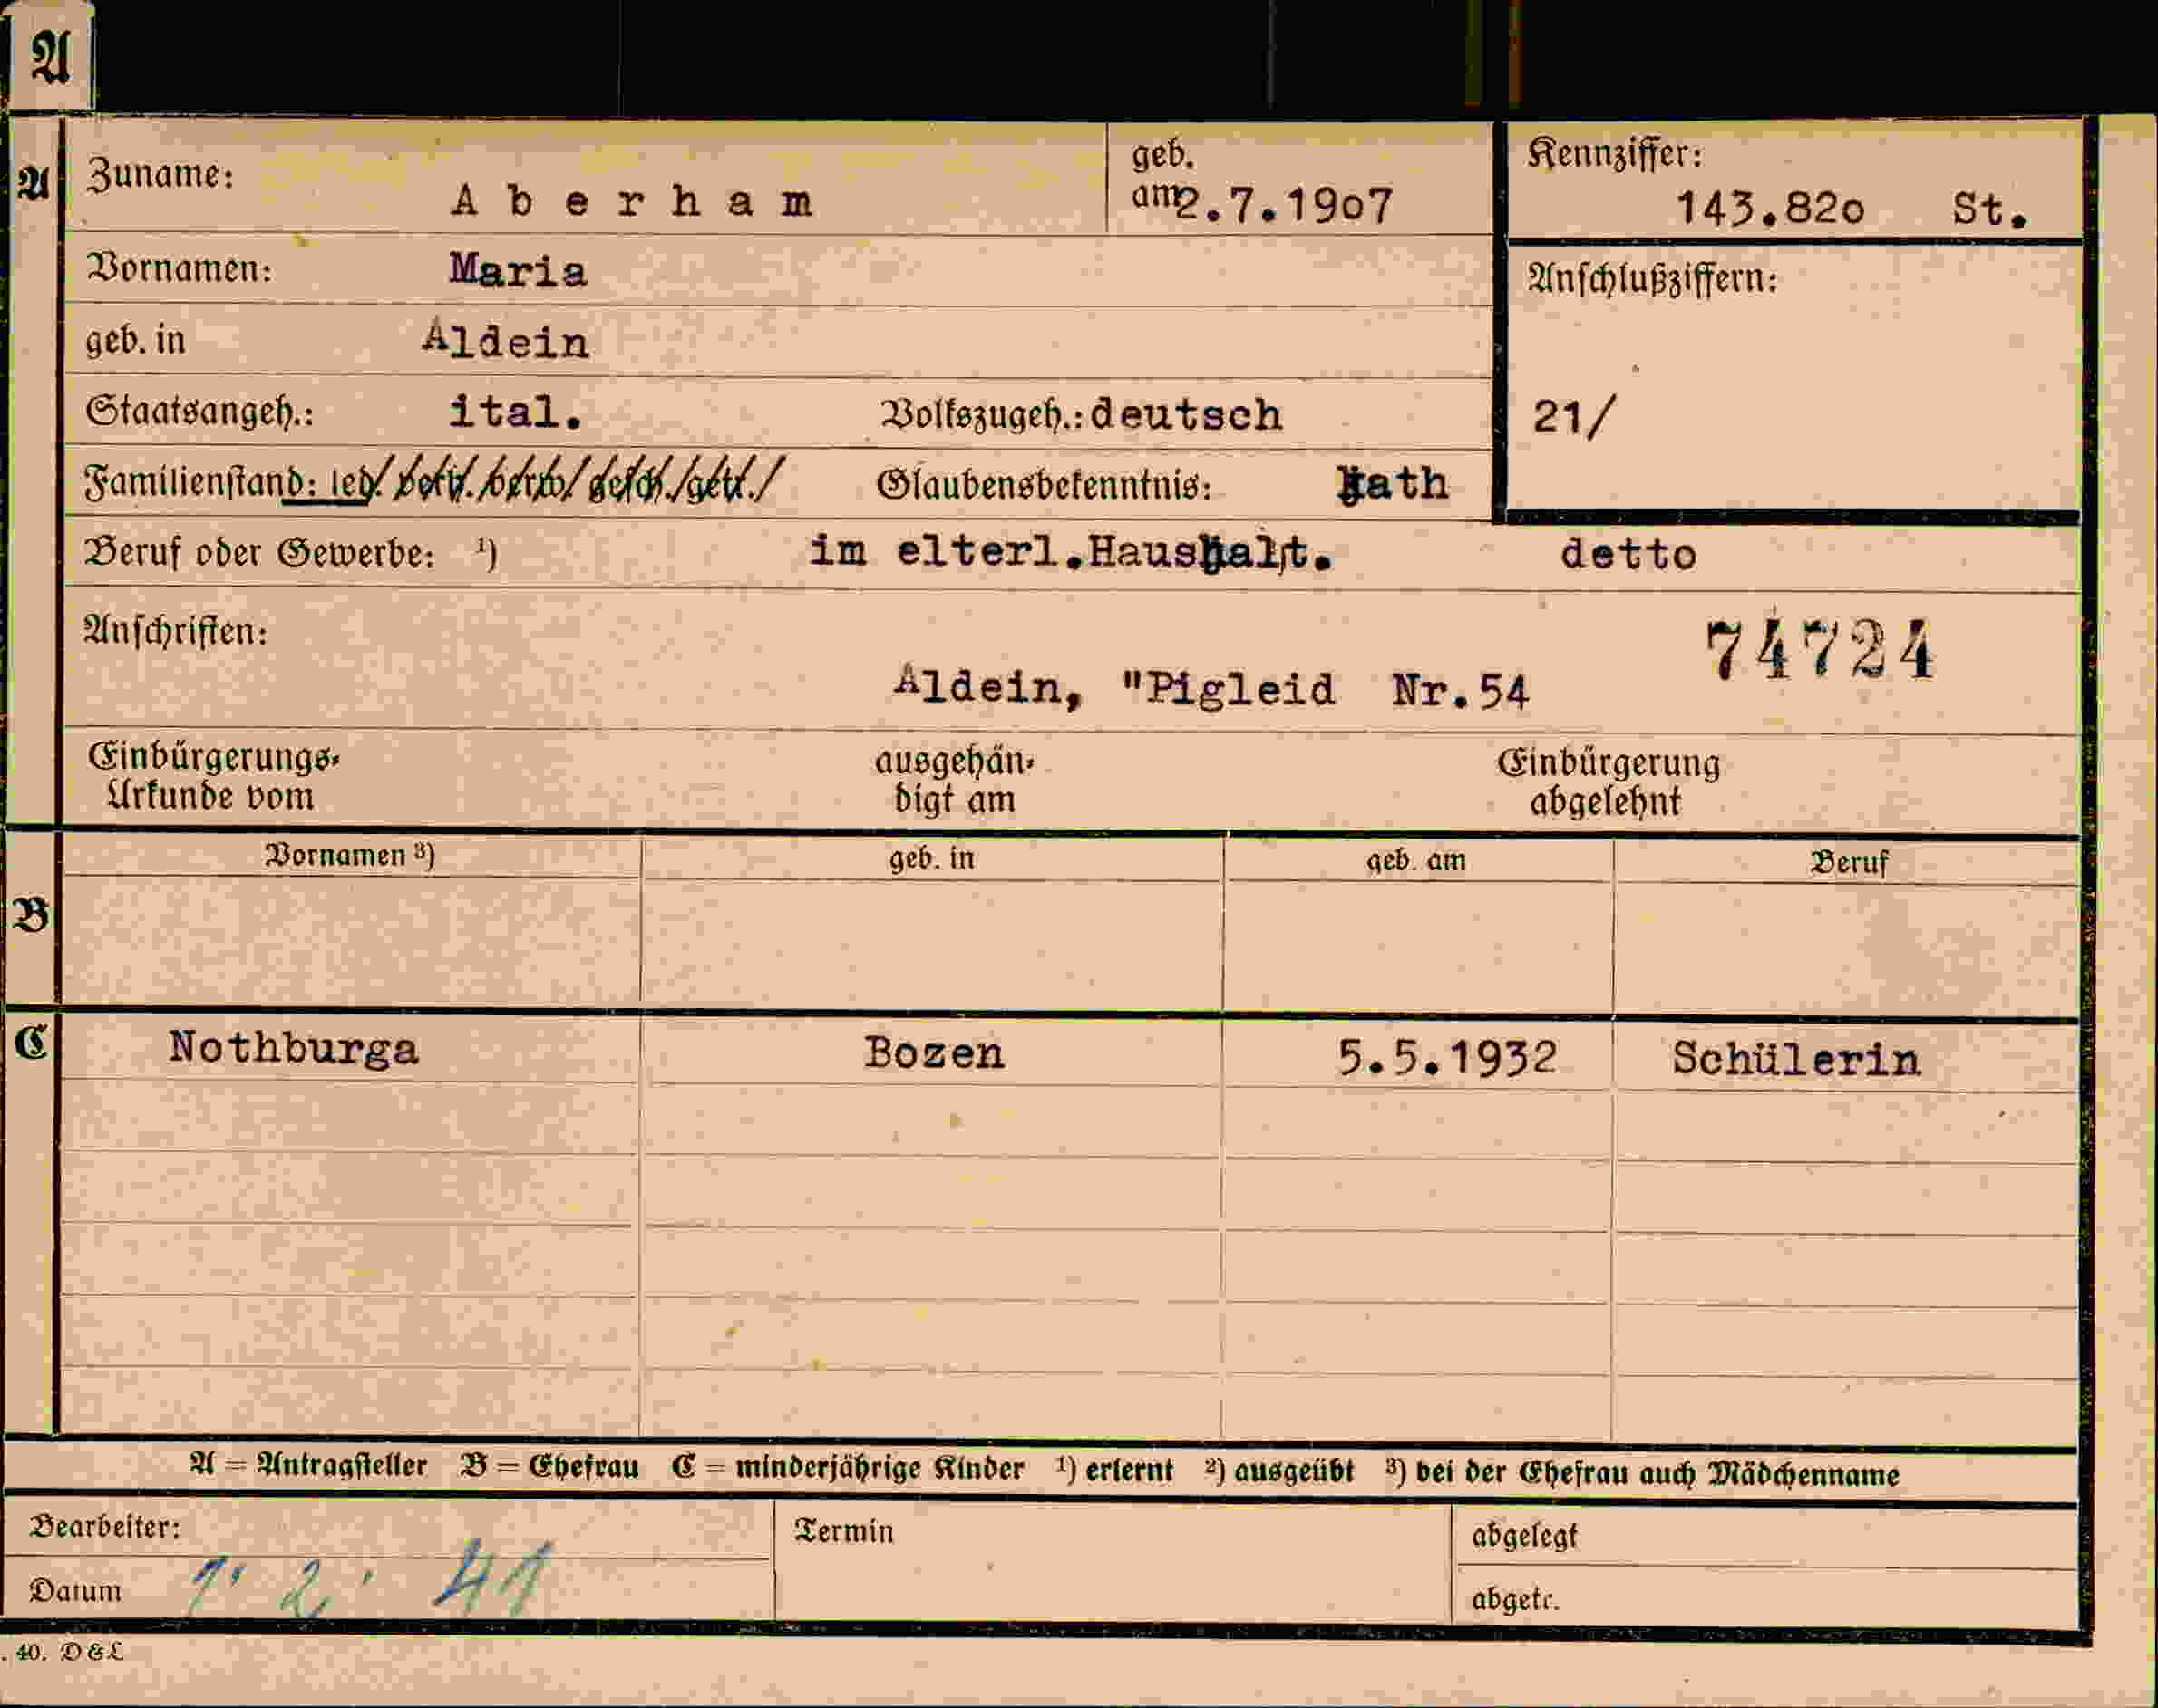 A
A Zuname: Aberham geb. am 2.7.1907 Kennziffer: 143.82o St.
Vornamen: Maria Anschlußziffern:
geb. in Aldein
Staatsangeh.: ital. Volkszugeh.: deutsch 21/
Familienstand: led./verh./verw./gesch./getr./ Glaubensbekenntnis: kath
Beruf oder Gewerbe: ¹) im elterl.Haushalt. detto
Anschriften: 74724
Aldein, "Pigleid Nr.54
Einbürgerungs- ausgehän- Einbürgerung
Urkunde vom digt am abgelehnt
Vornamen ³) geb. in geb. am Beruf
B
C Nothburga Bozen 5.5.1932 Schülerin
A = Antragsteller B = Ehefrau C = minderjährige Kinder ¹) erlernt ²) ausgeübt ³) bei der Ehefrau auch Mädchenname
Bearbeiter: Termin abgelegt
Datum 2. 41 abgetr.
. 40. D & L